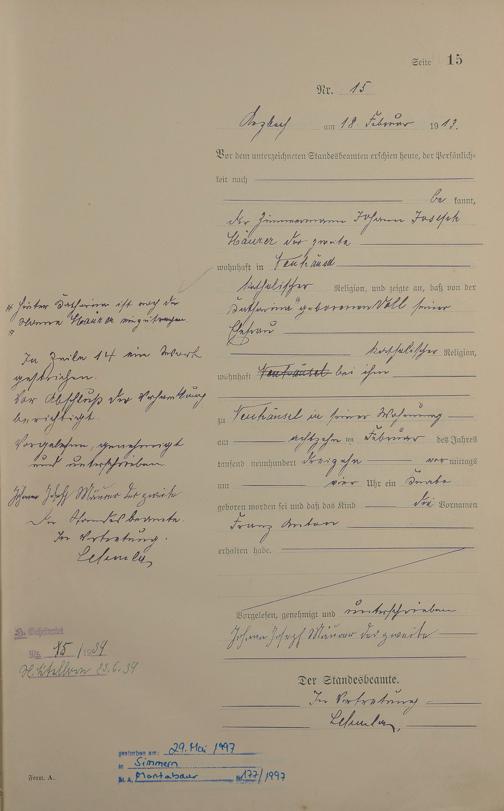 Seite 15
Nr. 15
Arzbach am 18. Februar 1913.
Vor dem unterzeichneten Standesbeamten erschien heute, der Persönlich-
keit nach
be kannt,
der Zimmermann Johann Joseph
Mäurer der zweite
wohnhaft in Neuhäusel
katholischer Religion, und zeigte an, daß von der
Katharina " geborenen Voll seiner
Ehefrau
katholischer Religion,
wohnhaft Neuhäusel bei ihm
zu Neuhäusel in seiner Wohnung
am achtzehn ten Februar des Jahres
tausend neunhundert dreizehn vor mittags
um vier Uhr ein Knabe
geboren worden sei und daß das Kind die Vornamen
Franz Anton
erhalten habe.
Vorgelesen, genehmigt und unterschrieben
Johann Joseph Mäurer der zweite
Der Standesbeamte.
In Vertretung
" Hinter Katharina ist noch der
Name Mäurer einzutragen
In Zeile 14 ein Wort
gestrichen.
Vor Abschluß der Verhandlung
berichtigt
Vorgelesen, genehmigt
und unterschrieben
Johann Joseph Mäurer der zweite
Der Standesbeamte.
In Vertretung.
Nr. 15/1939
23.6.39
gestorben am: 29. Mai 1997
in Simmern
St. A. Montabaur Nr. 177/1997
Form. A.